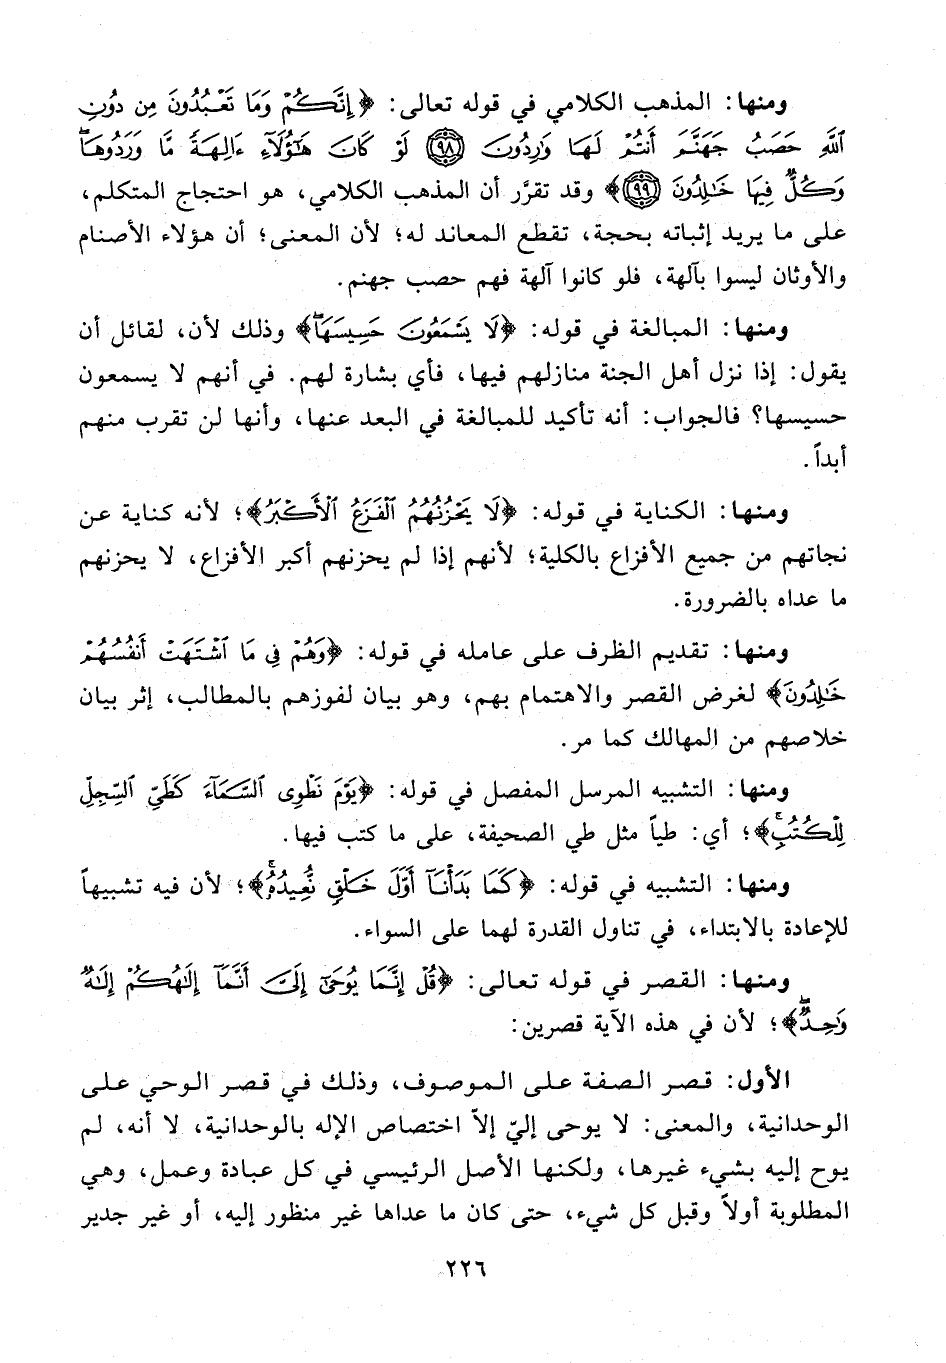 ومنها: المذهب الكلامي في قوله تعالى: ﴿إِنَّكُمْ وَمَا تَعْبُدُونَ مِن دُونِ
ٱللَّهِ حَصَبُ جَهَنَّمَ أَنتُمْ لَهَا وَٰرِدُونَ ﴿٩٨﴾ لَوْ كَانَ هَٰٓؤُلَآءِ ءَالِهَةً مَّا وَرَدُوهَاۖ
وَكُلٌّ فِيهَا خَٰلِدُونَ ﴿٩٩﴾﴾ وقد تقرَّر أن المذهب الكلامي، هو احتجاج المتكلم،
على ما يريد إثباته بحجة، تقطع المعاند له؛ لأن المعنى؛ أن هؤلاء الأصنام
والأوثان ليسوا بآلهة، فلو كانوا آلهة فهم حصب جهنم.
ومنها: المبالغة في قوله: ﴿لَا يَسْمَعُونَ حَسِيسَهَاۖ﴾ وذلك لأن، لقائل أن
يقول: إذا نزل أهل الجنة منازلهم فيها، فأي بشارة لهم. في أنهم لا يسمعون
حسيسها؟ فالجواب: أنه تأكيد للمبالغة في البعد عنها، وأنها لن تقرب منهم
أبداً.
ومنها: الكناية في قوله: ﴿لَا يَحْزُنُهُمُ ٱلْفَزَعُ ٱلْأَكْبَرُ﴾؛ لأنه كناية عن
نجاتهم من جميع الأفزاع بالكلية؛ لأنهم إذا لم يحزنهم أكبر الأفزاع، لا يحزنهم
ما عداه بالضرورة.
ومنها: تقديم الظرف على عامله في قوله: ﴿وَهُمْ فِي مَا ٱشْتَهَتْ أَنفُسُهُمْ
خَٰلِدُونَ﴾ لغرض القصر والاهتمام بهم، وهو بيان لفوزهم بالمطالب، إثر بيان
خلاصهم من المهالك كما مر.
ومنها: التشبيه المرسل المفصل في قوله: ﴿يَوْمَ نَطْوِى ٱلسَّمَآءَ كَطَىِّ ٱلسِّجِلِّ
لِلْكُتُبِۚ﴾؛ أي: طياً مثل طي الصحيفة، على ما كتب فيها.
ومنها: التشبيه في قوله: ﴿كَمَا بَدَأْنَآ أَوَّلَ خَلْقٍ نُّعِيدُهُۥۚ﴾؛ لأن فيه تشبيهاً
للإعادة بالابتداء، في تناول القدرة لهما على السواء.
ومنها: القصر في قوله تعالى: ﴿قُلْ إِنَّمَا يُوحَىٰٓ إِلَىَّ أَنَّمَآ إِلَٰهُكُمْ إِلَٰهٌ
وَٰحِدٌۖ﴾؛ لأن في هذه الآية قصرين:
الأول: قصر الصفة على الموصوف، وذلك في قصر الوحي على
الوحدانية، والمعنى: لا يوحى إليّ إلاّ اختصاص الإله بالوحدانية، لا أنه، لم
يوح إليه بشيء غيرها، ولكنها الأصل الرئيسي في كل عبادة وعمل، وهي
المطلوبة أولاً وقبل كل شيء، حتى كان ما عداها غير منظور إليه، أو غير جدير
٢٢٦